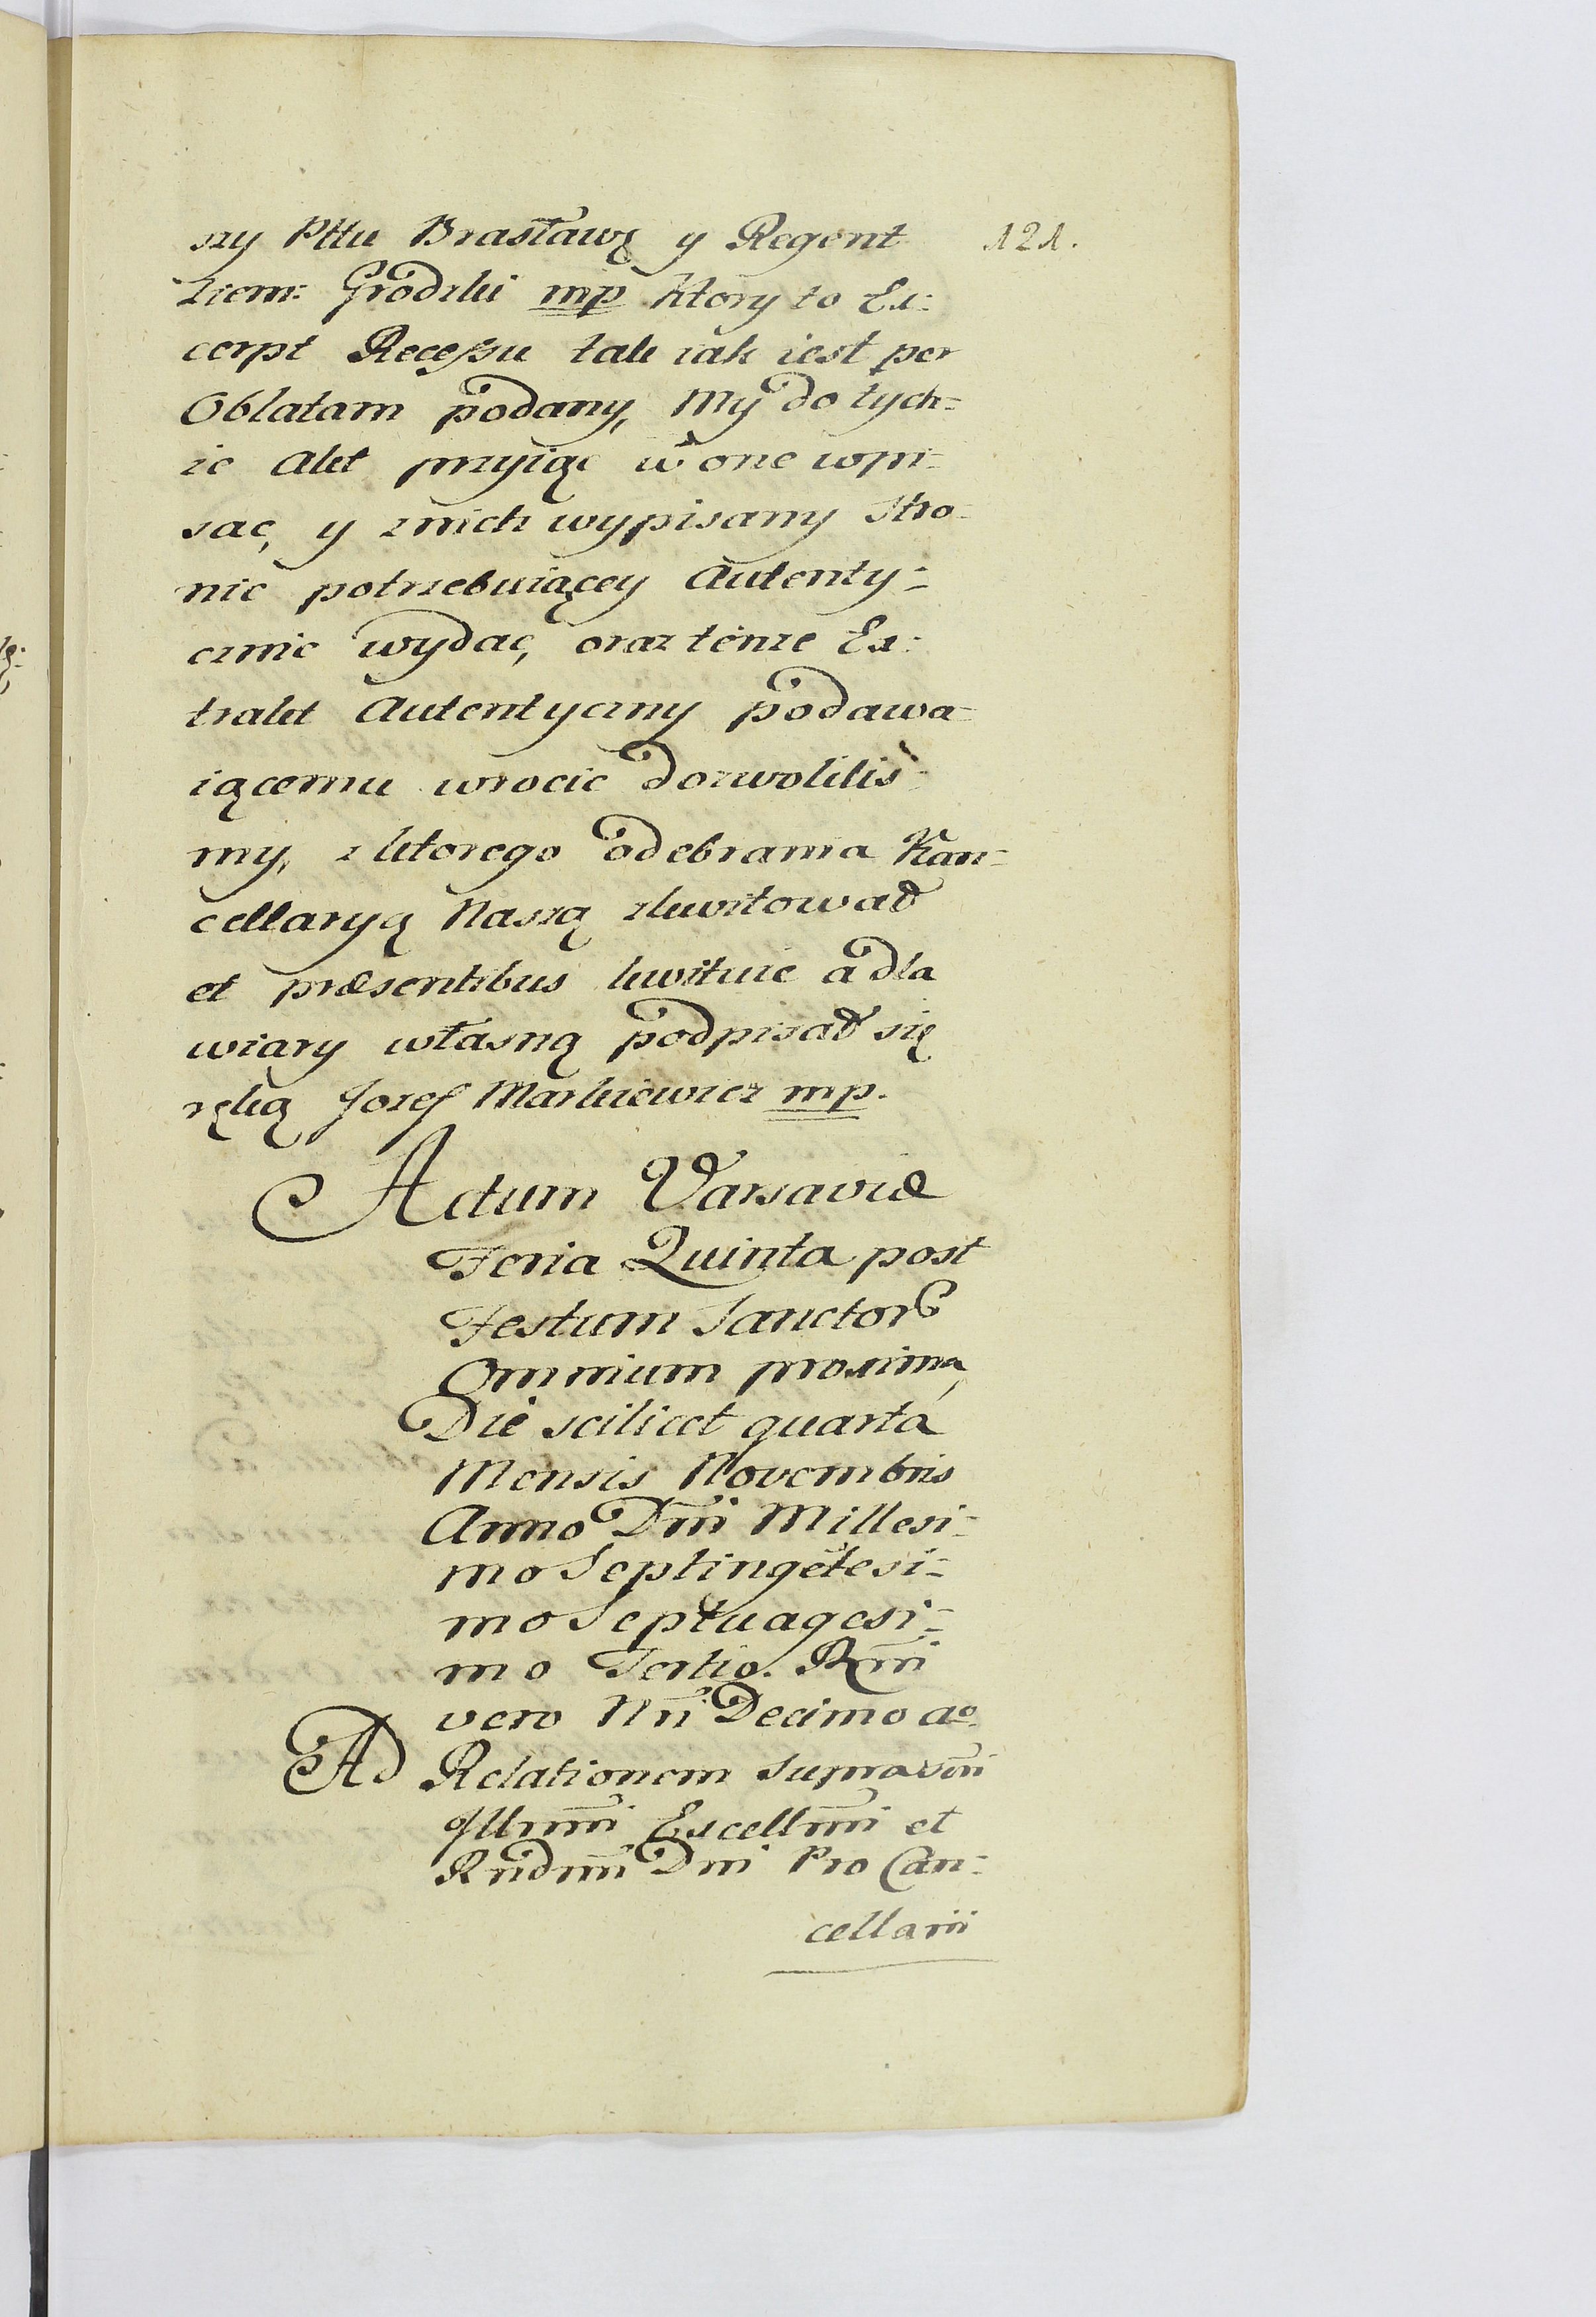 szy Pttu Brasławę y Regent
121.
Ziem: Grodzki mp Ktory to Ex=
cerpt Recessu tak iak iest per
Oblatam podany, My do tych=
że Akt przyiąć w one wpi=
sać, y z nich wypisany Stro=
nie potrzebuiącey Autenty=
cznie wydać, oraz tenże Ex=
trakt Autentyczny podawa=
iącemu wrocic dozwolilis=
my, z ktorego odebrania Kan=
cellaryą Naszą zkwitował
et præsentibus kwituie a dla
wiary własną podpisał się
ręką Jozef Markiewicz mp.
Actum Varsaviæ
Feria Quinta post
Festum Sanctor
Omnium proxima,
Die scilicet quarta
Mensis Novembris
Anno Dni Millesi=
mo Septingētesi=
mo Septuagesi=
mo Tertio. Rni
vero Nri Decimo ao.
Ad Relationem supra
Illmi Excellmi et
Rndmi Dni Pro Can=
cellarii